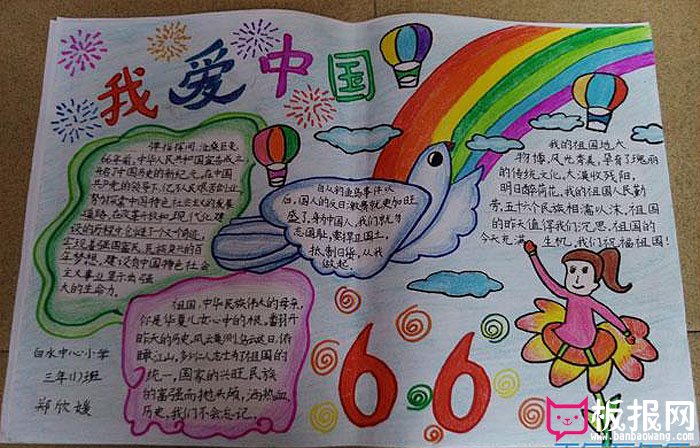 我爱中国
弹指挥间,沧桑巨变
66年前,中华人民共和国宣告成立
开启了中国历史的新纪元,在中国
共产党的领导下,亿万人民艰苦创业,
努力探索中国特色社会主义的发展
道路,在改革开放和现代化建
设的历程中创造了一个又一个奇迹,
实现着强国富民、民族复兴的百
年梦想,建设有中国特色社会
主义事业显示出强
大的生命力。
自从钓鱼岛事件以
后,国人的反日激昂就更加旺
盛了,身为中国人,我们就为
志国耻,索捍卫国土。
抵制日货,从我
做起。
我的祖国地大
物博,风光秀美,孕育了瑰丽
的传统文化,大漠收残阳,
明日醉荷花,我的祖国人民勤
劳,五十六个民族相濡以沫,祖国
的昨天值得我们沉思,祖国的
今天充满生机,我们祝福祖国!
祖国,中华民族伟大的母亲,
你是华夏儿女心中的根,翻开
昨天的历史,风云变幻乌云遮日,俯
瞰江山,多少仁人志士为了祖国的
统一,国家的兴旺民族
的富强而抛头颅,洒热血
历史,我们不会忘记。
白水中心小学
三年(1)班
郑欣媛
66
板报网
www.banbaowang.com